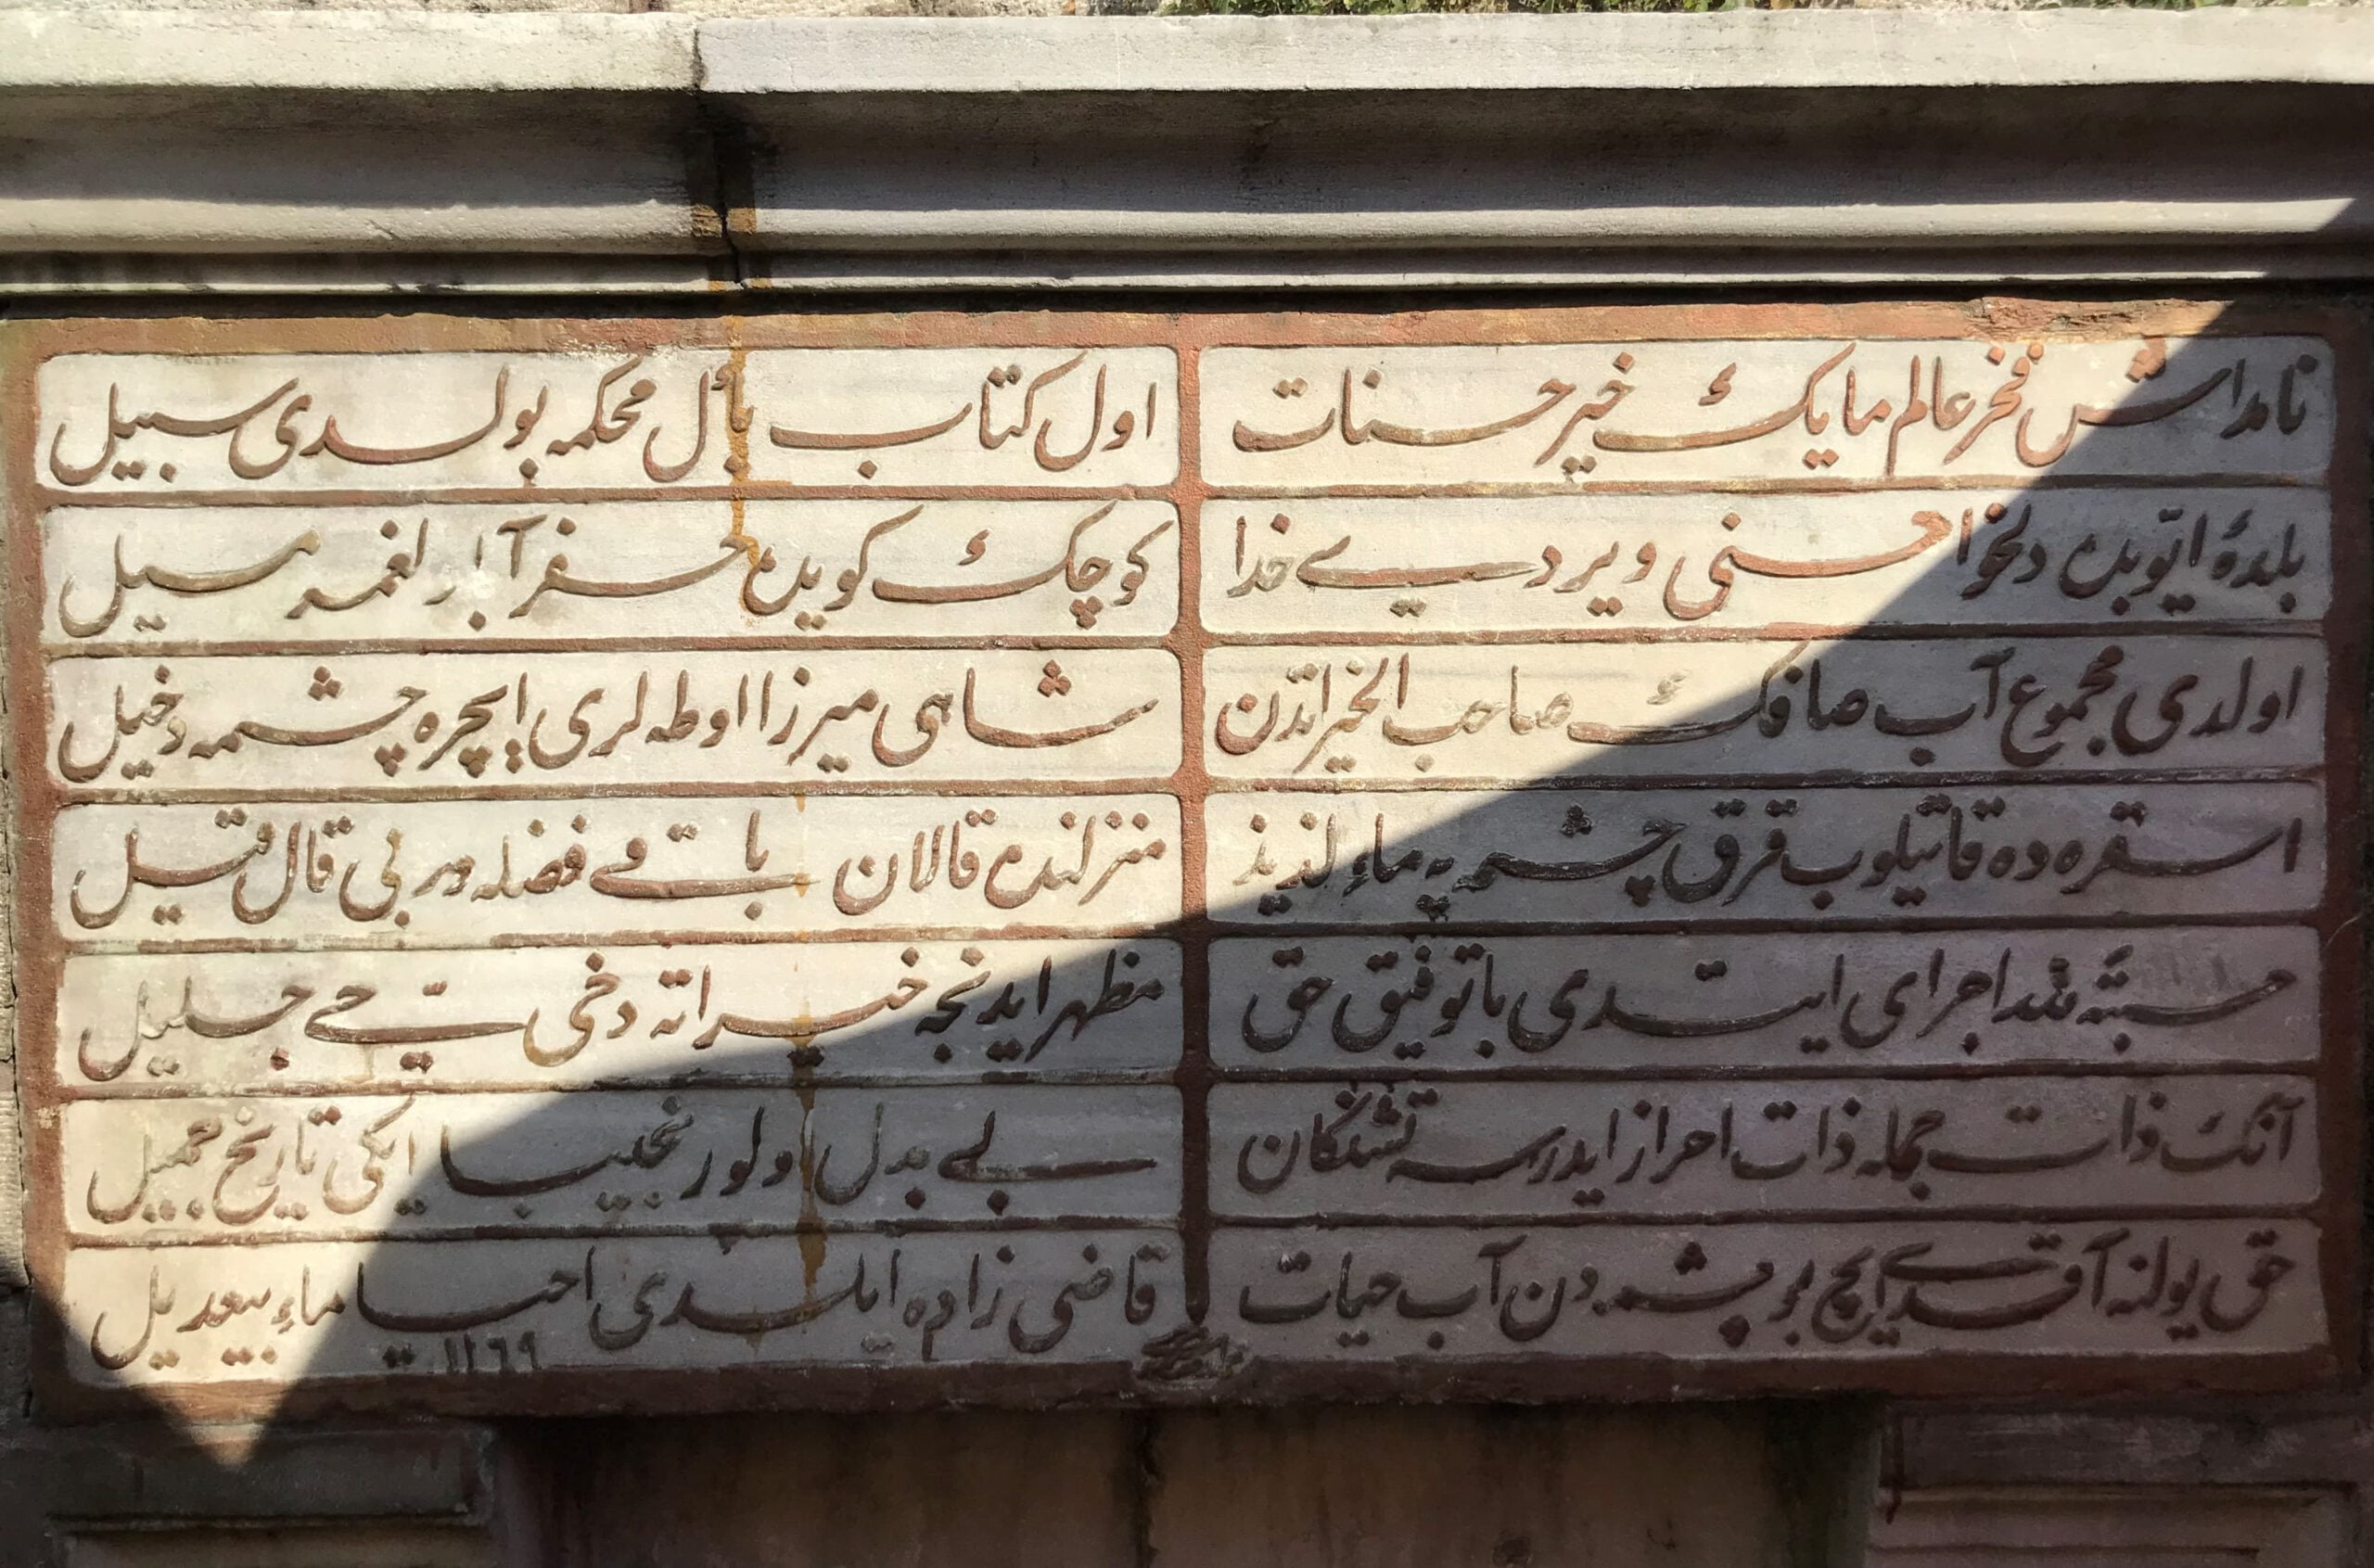 نامداش فخر عالم مایك خیر حسنات
اول کتاب محکمه بولدی سبیل
بلدۀ ایوبدن دلخواهنی ویردی خدا
کوچك کویدن حفر آبار لغمه سیل
اولدی مجموع آب صافك صاحب الخیراتدن
شاهی میرزا اوطه لری ایچره چشمه دخیل
اسقره ده قاتیلوب قرق چشمه یه ماء لذیذ
منزلندن قالان باقی فضله در بی قال قیل
حسبة لله اجرای ایتدی باتوفیق حق
مظهر ایدنجه خیراته دخی حی جلیل
آنك ذات جمله ذات احراز ایدرسه تشنکان
بی بدل اولور نجیبا ایکی تاریخ جمیل
حق یولنه آقدی ایچ بو چشمه دن آب حیات
قاضی زاده ایلدی احیا ماء بیعدیل
١١٦٩